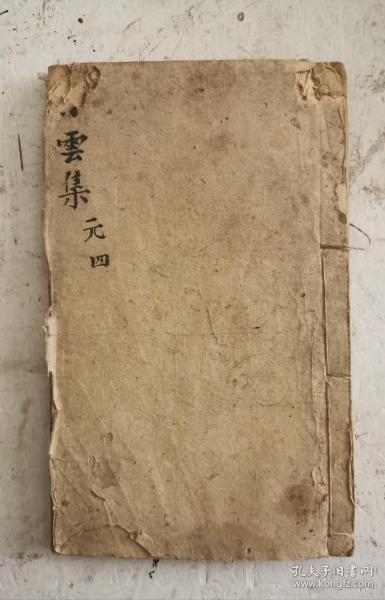 雲集
元四
孔夫子旧书网
www.kongfz.com